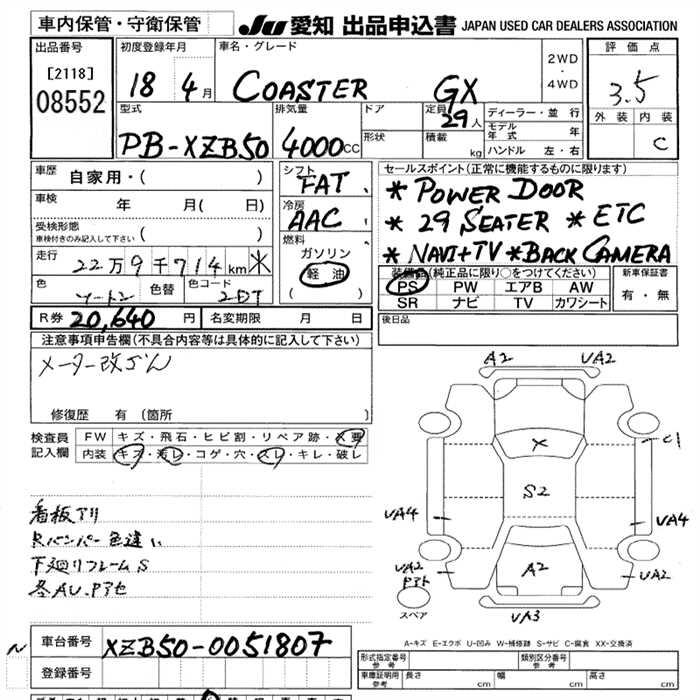 車内保管・守衛保管
JU 愛知 出品申込書 JAPAN USED CAR DEALERS ASSOCIATION
出品番号
[2118]
08552
初度登録年月
18 4月
車名・グレード
COASTER GX
2WD
・
4WD
評価点
3.5
外装 内装
C
型式
PB-XZB50
排気量
4000cc
ドア
形状
定員
29人
積載
kg
ディーラー・並行
モデル年式 年
ハンドル 左・右
車歴
自家用・( )
車検
年 月( 日)
受検形態
車検付きのみ記入して下さい( )
走行
22万9千714km
色
ツートン
色替
色コード
2ET
R券 20,640 円
名変期限 月 日
シフト
FAT
冷房
AAC
燃料
ガソリン
軽油
( )
セールスポイント(正常に機能するものに限ります)
* POWER DOOR
* 29 SEATER * ETC
* NAVI+TV *BACK CAMERA
装備品(純正品に限り○をつけてください)
PS PW エアB AW
SR ナビ TV カワシート
新車保証書
有・無
後日品
注意事項申告欄(不具合内容等は具体的に記入して下さい)
メーター改ざん
修復歴 有(箇所 )
検査員
記入欄
FW キズ・飛石・ヒビ割・リペア跡・X要
内装 キズ・汚レ・コゲ・穴・スレ・キレ・破レ
看板アリ
Rバンパー色違い
下廻リフレームS
各AU.Pアセ
A2 UA2
X
C1
S2
UA4
UA4
UA2
A2
UA2
UA3
スペア
A-キズ E-エクボ U-凹み W-補修跡 S-サビ C-腐食 XX-交換済
N
車台番号 XZB50-0051807
登録番号
形式指定番号
参考
類別区分番号
参考
車庫証明用
参考
長さ cm
幅 cm
高さ cm